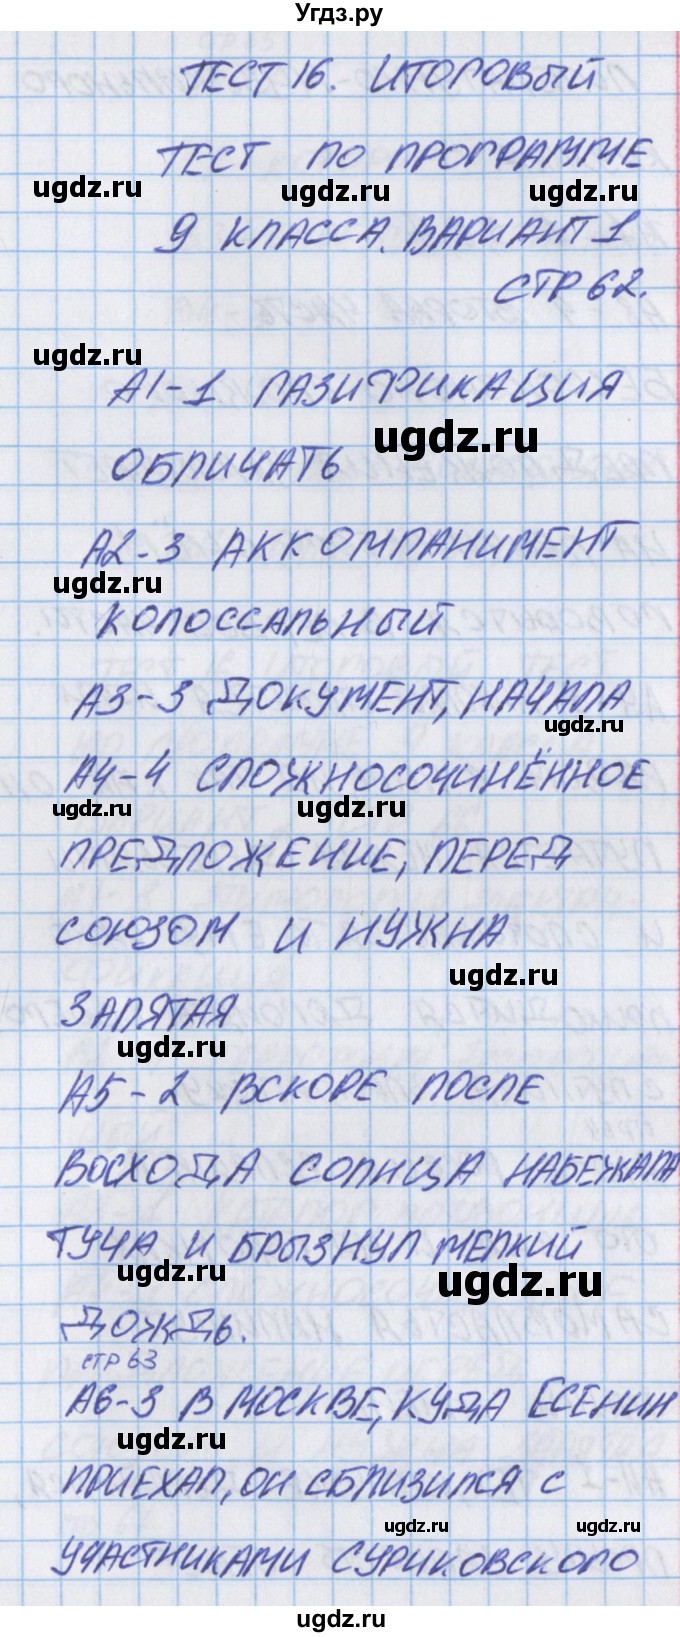 Угдз.ру
ТЕСТ 16. ИТОГОВЫЙ
ТЕСТ ПО ПРОГРАММЕ
ugdz.ru ugdz.ru ugdz.ru
9 КЛАССА. ВАРИАНТ 1
СТР 62.
ugdz.ru
А1-1 ГАЗИФИКАЦИЯ
ugdz.ru
ОБЛИЧАТЬ
А2-3 АККОМПАНИМЕНТ
ugdz.ru
КОЛОССАЛЬНЫЙ
А3-3 ДОКУМЕНТ, НАЧАЛА
ugdz.ru
А4-4 СЛОЖНОСОЧИНЁННОЕ
ugdz.ru ugdz.ru
ПРЕДЛОЖЕНИЕ, ПЕРЕД
СОЮЗОМ И НУЖНА
ugdz.ru
ЗАПЯТАЯ
ugdz.ru
А5-2 ВСКОРЕ ПОСЛЕ
ВОСХОДА СОЛНЦА НАБЕЖАЛА
ТУЧА И БРЫЗНУЛ МЕЛКИЙ
ugdz.ru ugdz.ru
ДОЖДЬ.
СТР 63
А6-3 В МОСКВЕ, КУДА ЕСЕНИН
ugdz.ru
ПРИЕХАЛ, ОН СБЛИЗИЛСЯ С
ugdz.ru ugdz.ru
УЧАСТНИКАМИ СУРИКОВСКОГО
ugdz.ru